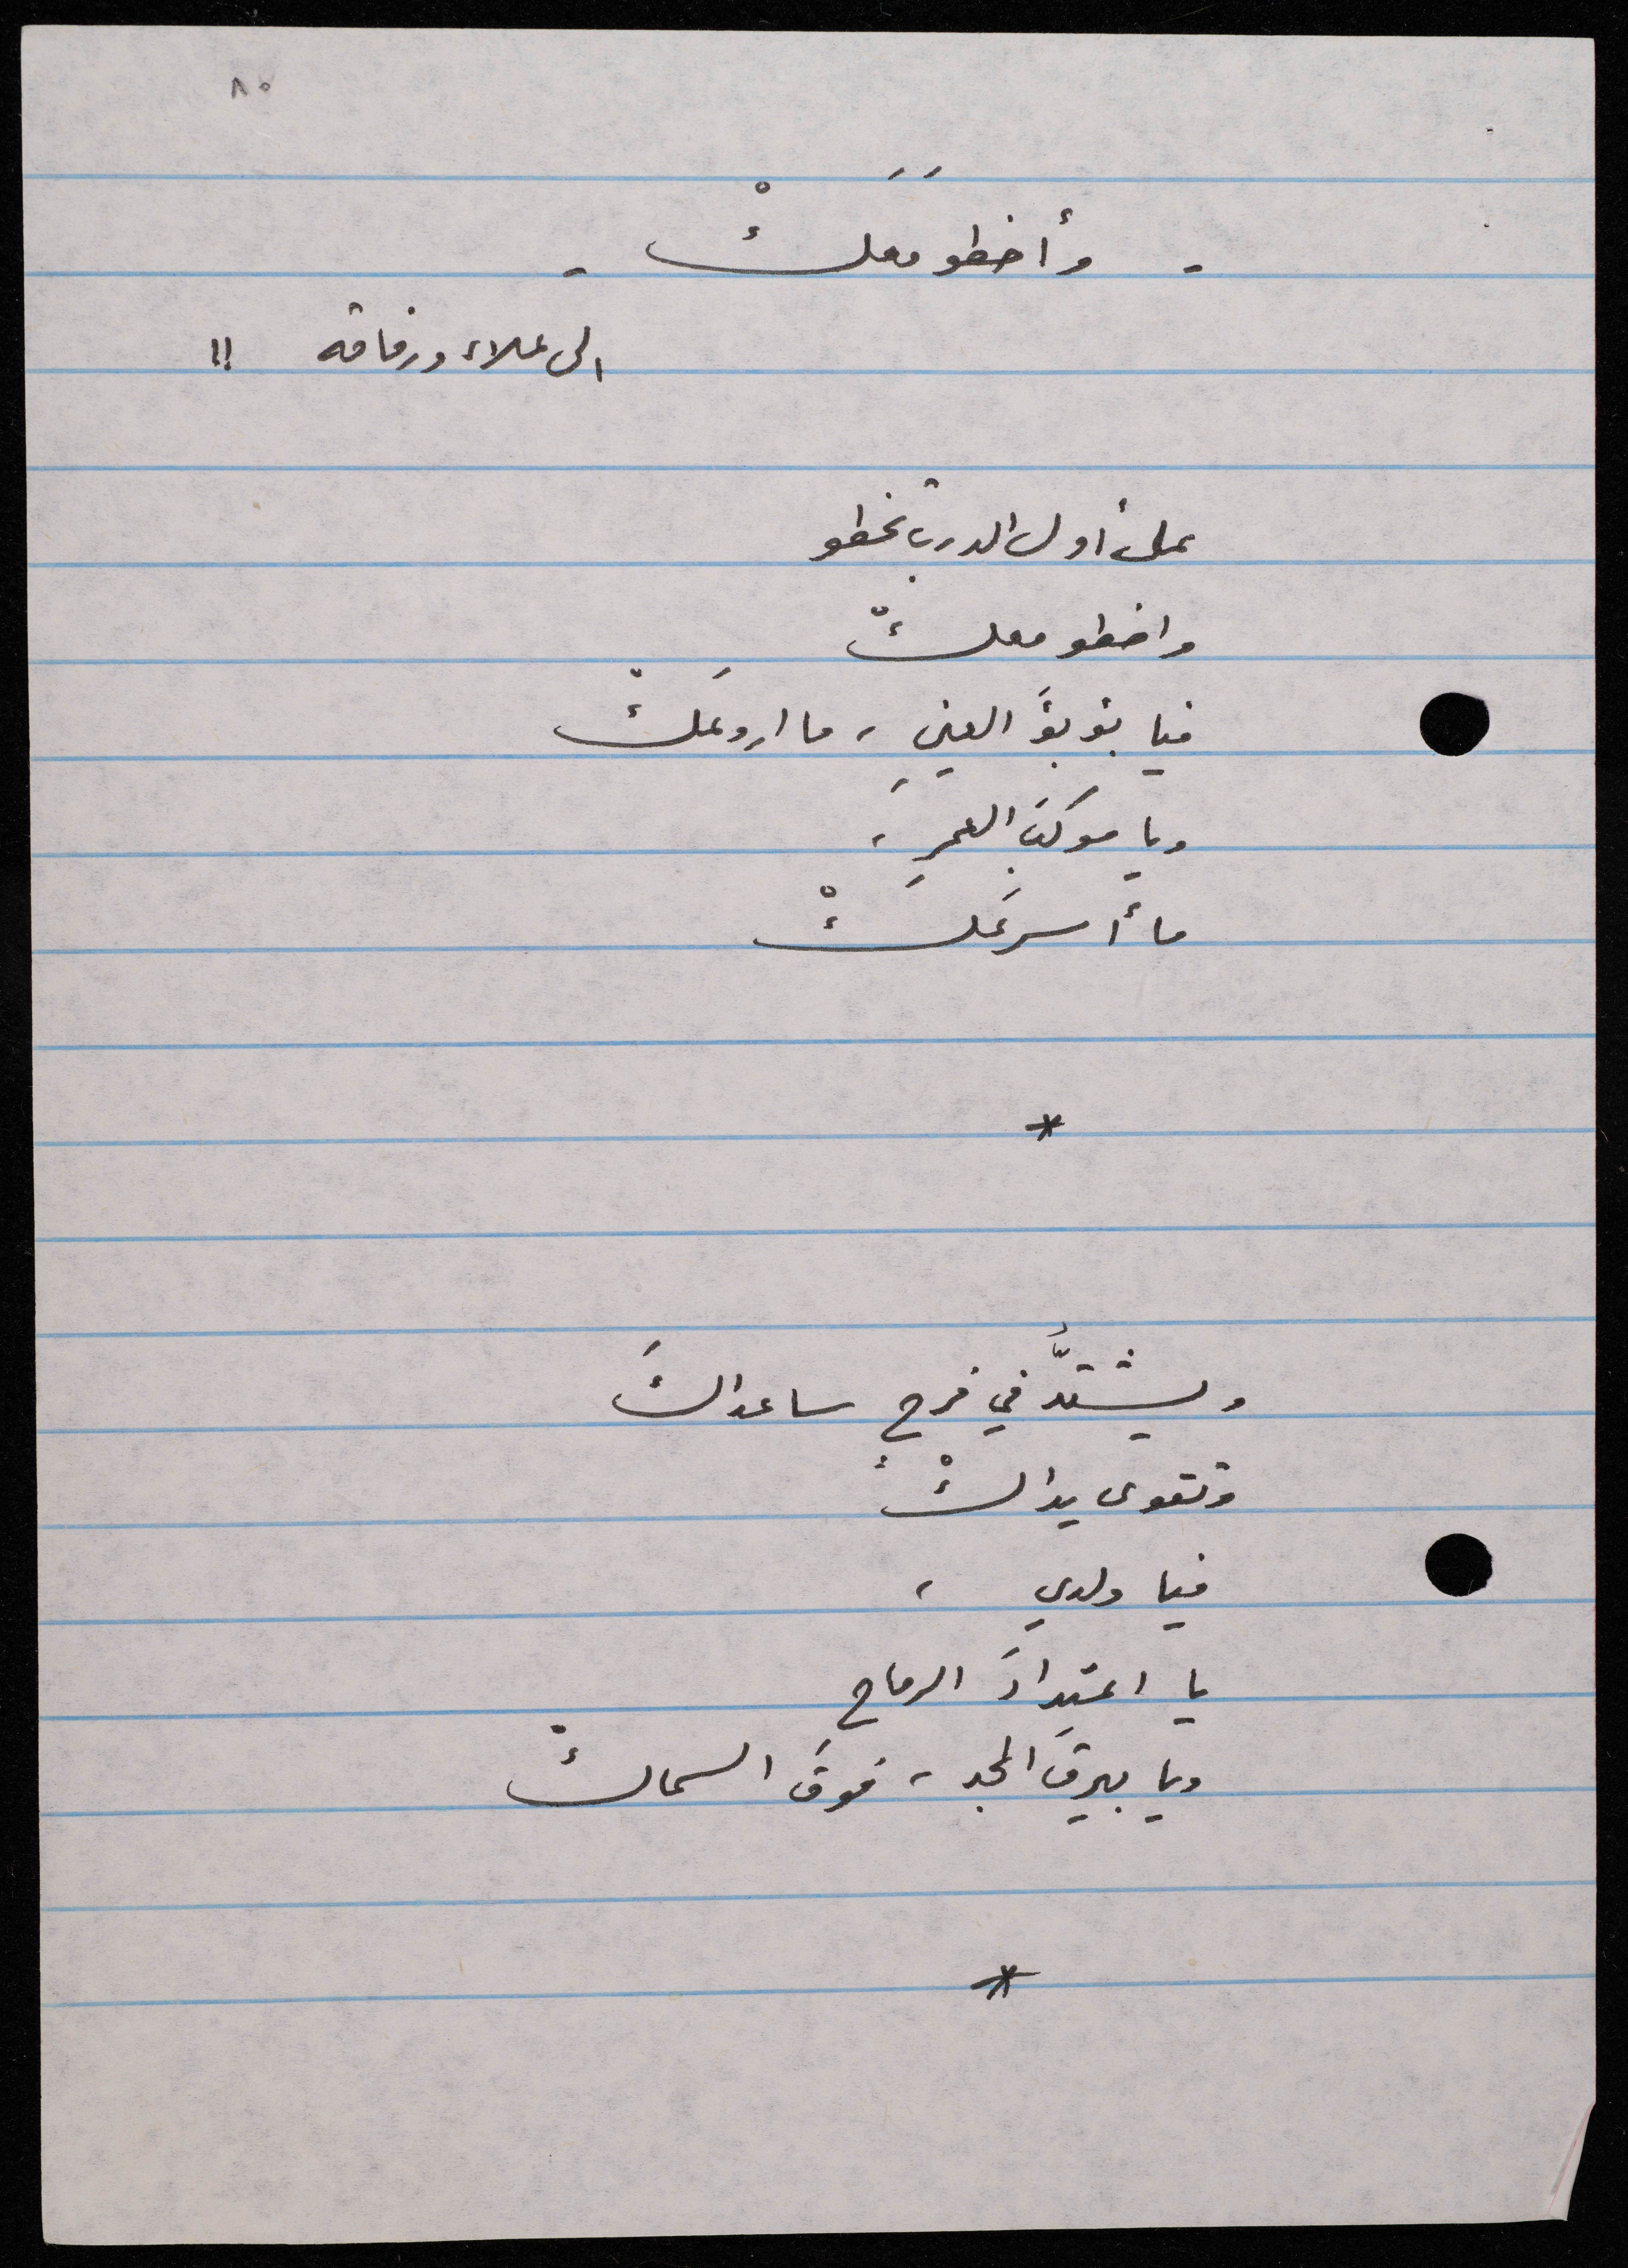 ٨٠
- وأخطو مَعَكْ -
الى علاء ورفاقه !!
على أول الدرب تخطو
واخطو معكْ
فيا بؤبؤَ العينِ ، ما اروعَكْ
ويا موكبَ العمرِ ،
ما أسرعَكْ
*
ويشتدُّ في فرحٍ ساعداكَ
وتقوى يداكْ
فيا ولدي ،
يا امتدادَ الرماح
ويا بيرقَ المجد ، فوقَ السماكْ
*